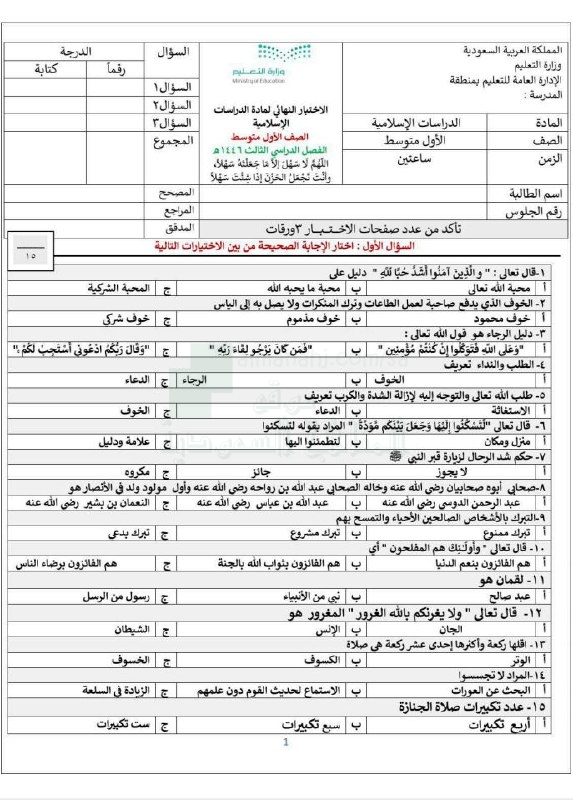 المملكة العربية السعودية
وزارة التعليم
الإدارة العامة للتعليم بمنطقة
المدرسة :
وزارة التعليم
Ministry of Education
الاختبار النهائي لمادة الدراسات الإسلامية
الصف الأول متوسط
الفصل الدراسي الثالث ١٤٤٦هـ
اللَّهُمَّ لَا سَهْلَ إِلَّا مَا جَعَلْتَهُ سَهْلًا، وَأَنْتَ تَجْعَلُ الحَزْنَ إِذَا شِئْتَ سَهْلًا
السؤال الدرجة
رقماً كتابة
السؤال١
السؤال٢
السؤال٣
المجموع
المادة الدراسات الإسلامية
الصف الأول متوسط
الزمن ساعتين
اسم الطالبة المصحح
رقم الجلوس المراجع
تأكد من عدد صفحات الاختبار ٣ورقات المدقق
السؤال الأول : اختار الإجابة الصحيحة من بين الاختيارات التالية
١٥
١-قال تعالى : " والَّذِينَ آمَنُوا أَشَدُّ حُبًّا لِّلَّهِ " دليل على
أ محبة الله تعالى ب محبة ما يحبه الله ج المحبة الشركية
٢- الخوف الذي يدفع صاحبة لعمل الطاعات وترك المنكرات ولا يصل به إلى الياس
أ خوف محمود ب خوف مذموم ج خوف شركي
٣- دليل الرجاء هو قول الله تعالى :
أ "وَعَلَى اللَّهِ فَتَوَكَّلُوا إِن كُنتُم مُّؤْمِنِينَ " ب "فَمَن كَانَ يَرْجُو لِقَاءَ رَبِّهِ " ج "وَقَالَ رَبُّكُمُ ادْعُونِي أَسْتَجِبْ لَكُمْ "
٤- الطلب والنداء تعريف
أ الخوف ب الرجاء ج الدعاء
٥- طلب الله تعالى والتوجه إليه لإزالة الشدة والكرب تعريف
أ الاستغاثة ب الدعاء ج الخوف
٦- قال تعالى "لِّتَسْكُنُوا إِلَيْهَا وَجَعَلَ بَيْنَكُم مَّوَدَّةً " المراد بقوله لتسكنوا
أ منزل ومكان ب لتطمئنوا اليها ج علامة ودليل
٧- حكم شد الرحال لزيارة قبر النبي ﷺ
أ لا يجوز ب جائز ج مكروه
٨-صحابي أبوه صحابيان رضي الله عنه وخاله الصحابي عبد الله بن رواحه رضي الله عنه وأول مولود ولد في الأنصار هو
أ عبد الرحمن الدوسي رضي الله عنه ب عبد الله بن عباس رضي الله عنه ج النعمان بن بشير رضي الله عنه
٩-التبرك بالأشخاص الصالحين الأحياء والتمسح بهم
أ تبرك ممنوع ب تبرك مشروع ج تبرك بدعي
١٠- قال تعالى " وأولئك هم المفلحون " أي
أ هم الفائزون بنعم الدنيا ب هم الفائزون بثواب الله بالجنة ج هم الفائزون برضاء الناس
١١- لقمان هو
أ عبد صالح ب نبي من الأنبياء ج رسول من الرسل
١٢- قال تعالى " ولا يغرنكم بالله الغرور " المغرور هو
أ الجان ب الإنس ج الشيطان
١٣- اقلها ركعة وأكثرها إحدى عشر ركعة هي صلاة
أ الوتر ب الكسوف ج الخسوف
١٤-المراد لا تجسسوا
أ البحث عن العورات ب الاستماع لحديث القوم دون علمهم ج الزيادة في السلعة
١٥- عدد تكبيرات صلاة الجنازة
أ أربع تكبيرات ب سبع تكبيرات ج ست تكبيرات
1